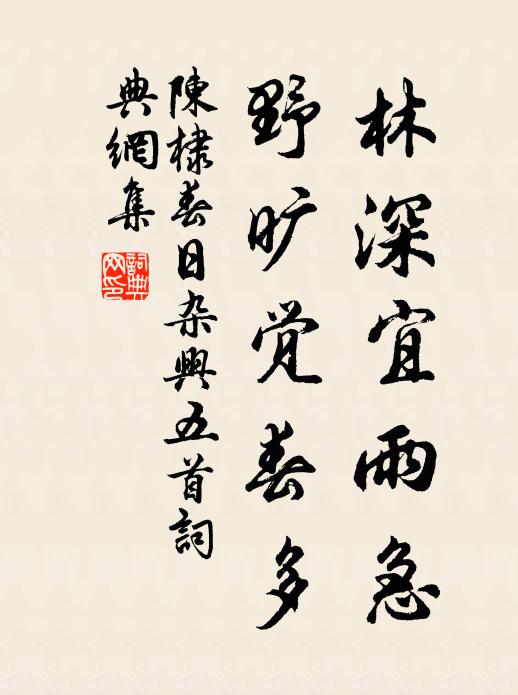 林深宜雨急
野旷觉春多
陳棣春日杂興五首詞
典網集
詞典网印